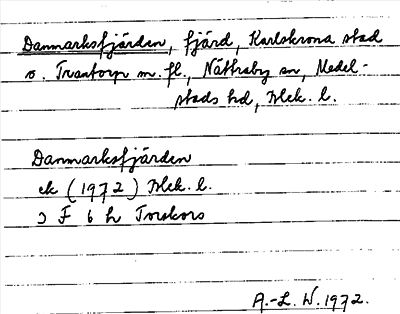 Danmarksfjärden, fjärd, Karlskrona stad
o. Trantorp m. fl., Nättraby sn, Medel-
stads hd, Blek. l.
Danmarksfjärden
ek (1972) Blek. l.
ɔ F 6 h Torskors
A.-L. W. 1972.